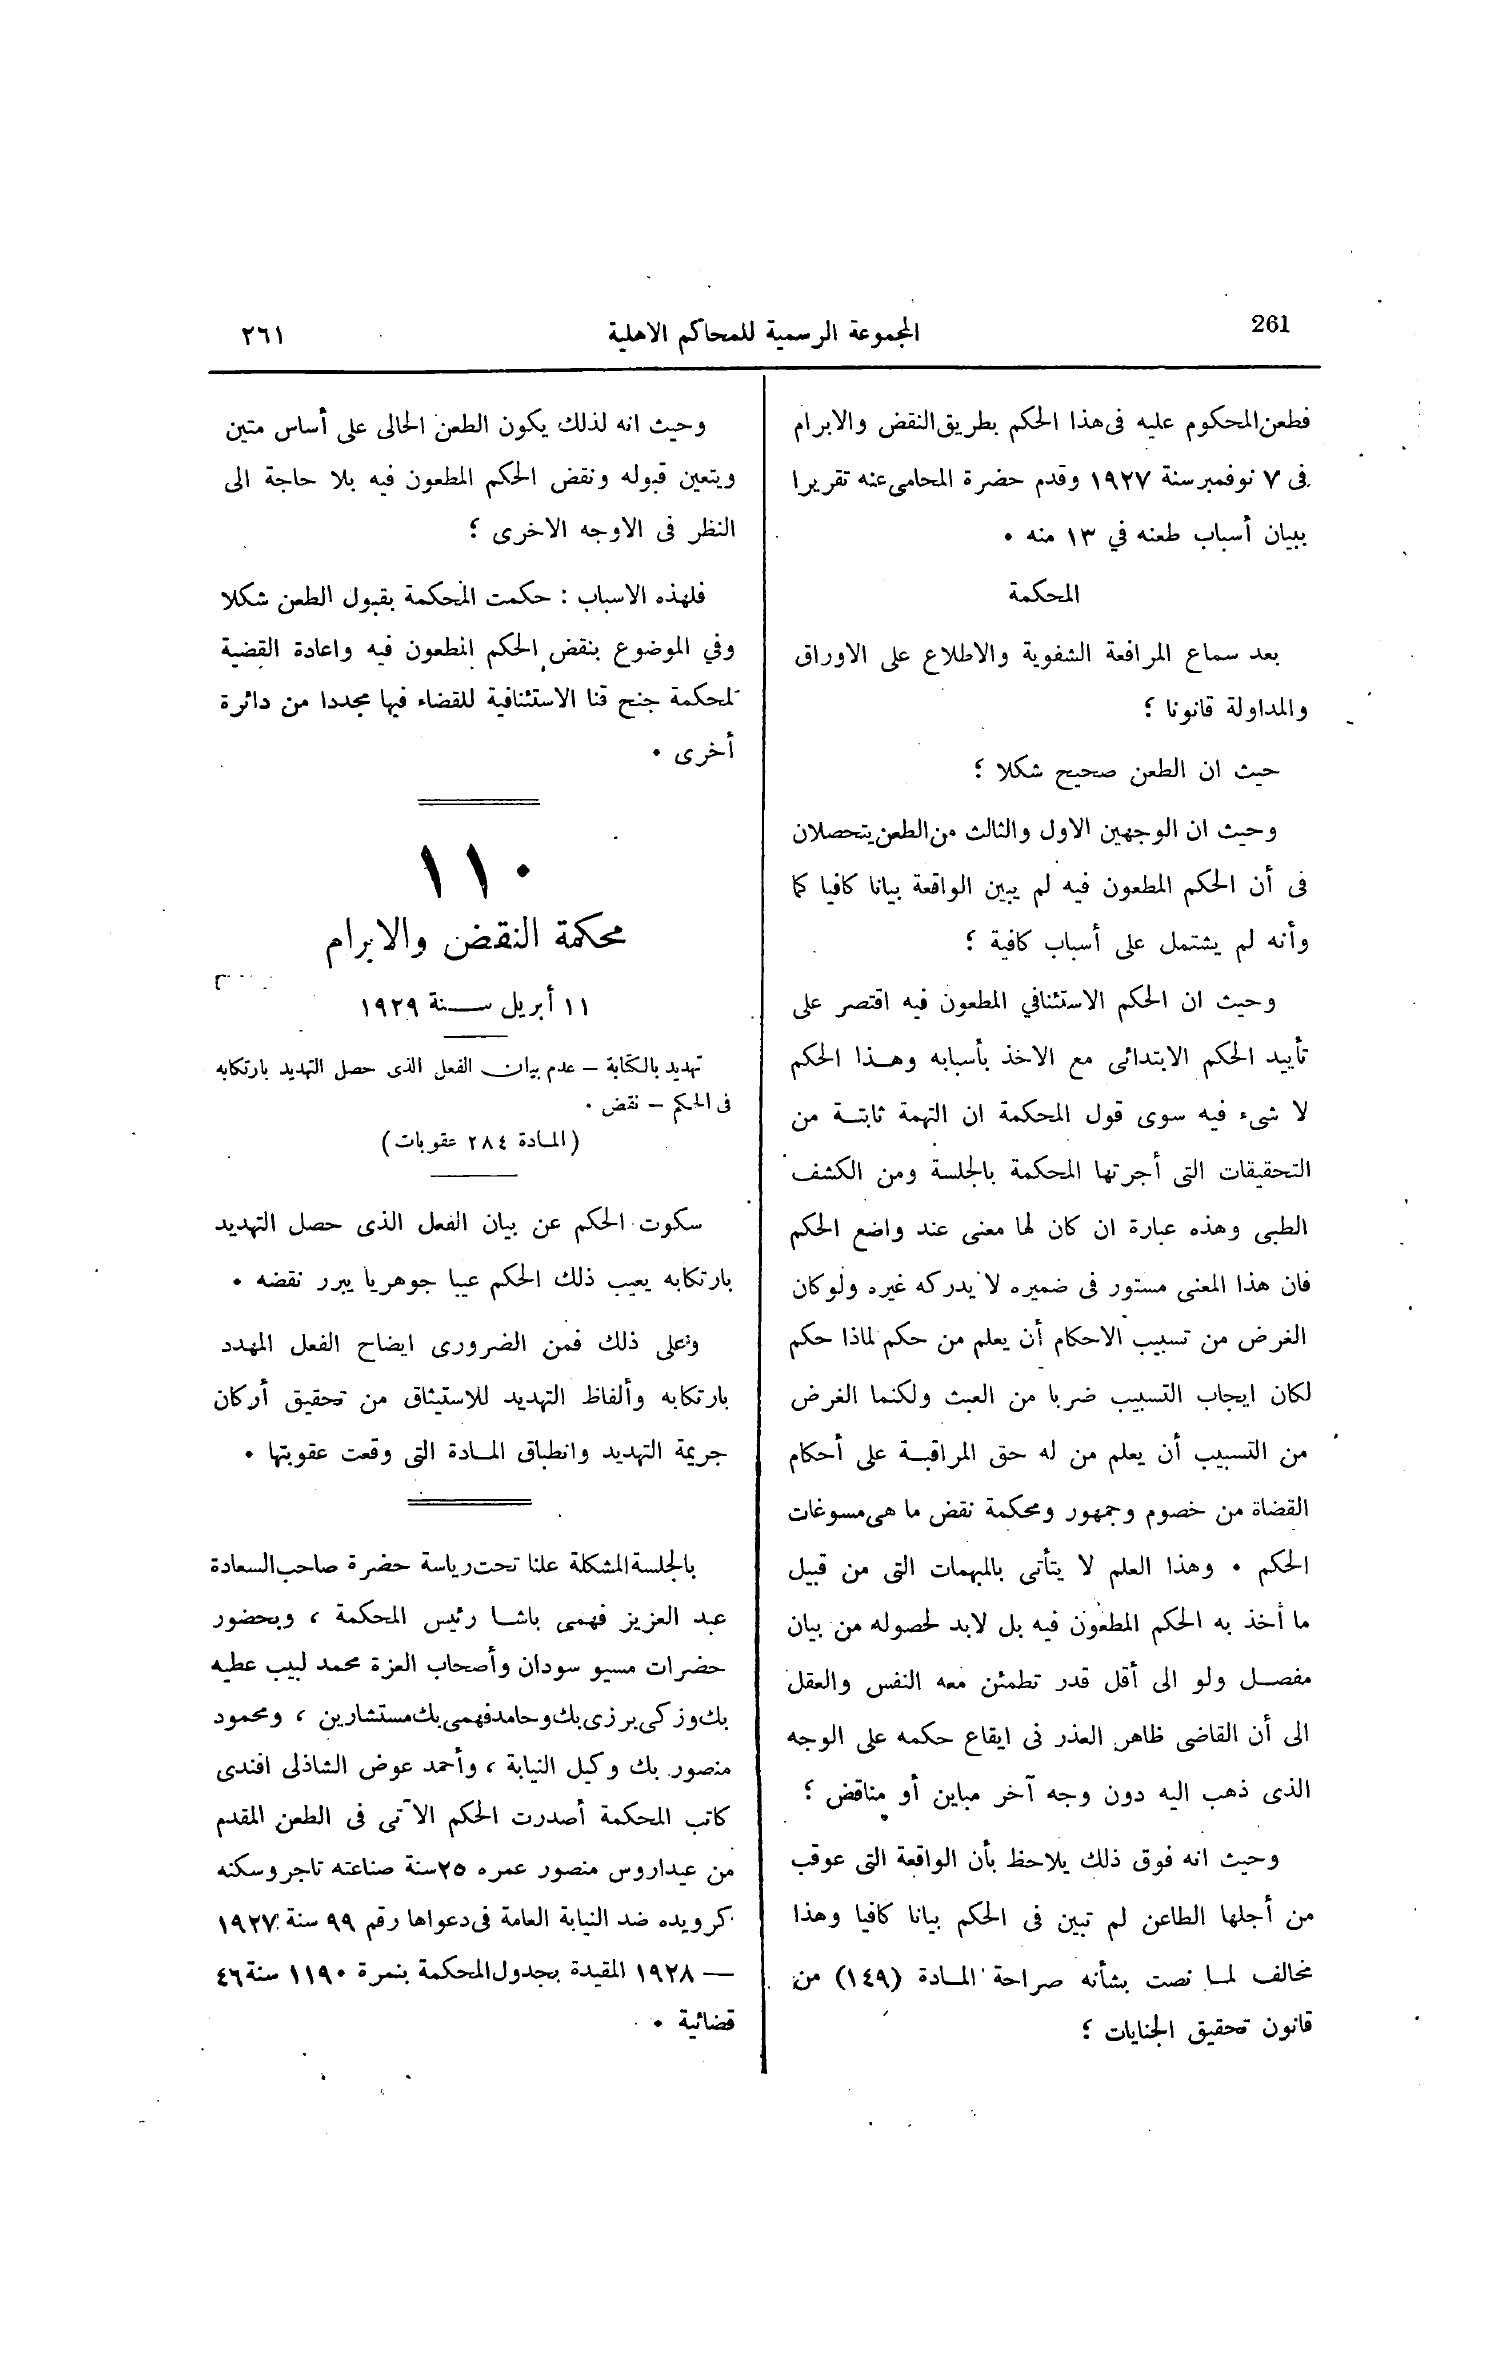 261
المجموعة الرسمية للمحاكم الاهلية
٢٦١
فطعن المحكوم عليه فى هذا الحكم بطريق النقض والابرام
فى ٧ نوفمبر سنة ١٩٢٧ وقدم حضرة المحامى عنه تقريرا
ببيان أسباب طعنه في ١٣ منه ٠
المحكمة
بعد سماع المرافعة الشفوية والاطلاع على الاوراق
والمداولة قانونا ؛
حيث ان الطعن صحيح شكلا ؛
وحيث ان الوجهين الاول والثالث من الطعن يتحصلان
فى أن الحكم المطعون فيه لم يبين الواقعة بيانا كافيا كما
وأنه لم يشتمل على أسباب كافية ؛
وحيث ان الحكم الاستئنافي المطعون فيه اقتصر على
تأييد الحكم الابتدائى مع الاخذ بأسبابه وهذا الحكم
لا شىء فيه سوى قول المحكمة ان التهمة ثابتة من
التحقيقات التى أجرتها المحكمة بالجلسة ومن الكشف
الطبى وهذه عبارة ان كان لها معنى عند واضع الحكم
فان هذا المعنى مستور فى ضميره لا يدركه غيره ولو كان
الغرض من تسبيب الاحكام أن يعلم من حكم لماذا حكم
لكان ايجاب التسبيب ضربا من العبث ولكنما الغرض
من التسبيب أن يعلم من له حق المراقبة على أحكام
القضاة من خصوم وجمهور ومحكمة نقض ما هى مسوغات
الحكم ٠ وهذا العلم لا يتأتى بالمبهمات التى من قبيل
ما أخذ به الحكم المطعون فيه بل لابد لحصوله من بيان
مفصل ولو الى أقل قدر تطمئن معه النفس والعقل
الى أن القاضى ظاهر العذر فى ايقاع حكمه على الوجه
الذى ذهب اليه دون وجه آخر مباين أو مناقض ؛
وحيث انه فوق ذلك يلاحظ بأن الواقعة التى عوقب
من أجلها الطاعن لم تبين فى الحكم بيانا كافيا وهذا
مخالف لما نصت بشأنه صراحة المادة (١٤٩) من
قانون تحقيق الجنايات ؛
وحيث انه لذلك يكون الطعن الحالى على أساس متين
ويتعين قبوله ونقض الحكم المطعون فيه بلا حاجة الى
النظر فى الاوجه الاخرى ؛
فلهذه الاسباب : حكمت المحكمة بقبول الطعن شكلا
وفي الموضوع بنقض الحكم المطعون فيه واعادة القضية
لمحكمة جنح قنا الاستئنافية للقضاء فيها مجددا من دائرة
أخرى ٠
١١٠
محكمة النقض والابرام
١١ أبريل سنة ١٩٢٩
تهديد بالكتابة – عدم بيان الفعل الذى حصل التهديد بارتكابه
فى الحكم – نقض ٠
(المادة ٢٨٤ عقوبات)
سكوت الحكم عن بيان الفعل الذى حصل التهديد
بارتكابه يعيب ذلك الحكم عيبا جوهريا يبرر نقضه ٠
وعلى ذلك فمن الضرورى ايضاح الفعل المهدد
بارتكابه وألفاظ التهديد للاستيثاق من تحقيق أركان
جريمة التهديد وانطباق المادة التى وقعت عقوبتها ٠
بالجلسة المشكلة علنا تحت رياسة حضرة صاحب السعادة
عبد العزيز فهمى باشا رئيس المحكمة ، وبحضور
حضرات مسيو سودان وأصحاب العزة محمد لبيب عطيه
بك وزكى برزى بك وحامد فهمى بك مستشارين ، ومحمود
منصور بك وكيل النيابة ، وأحمد عوض الشاذلى افندى
كاتب المحكمة أصدرت الحكم الآتى فى الطعن المقدم
من عيداروس منصور عمره ٢٥ سنة صناعته تاجر وسكنه
كرويده ضد النيابة العامة فى دعواها رقم ٩٩ سنة ١٩٢٧
— ١٩٢٨ المقيدة بجدول المحكمة بنمرة ١١٩٠ سنة ٤٦
قضائية ٠